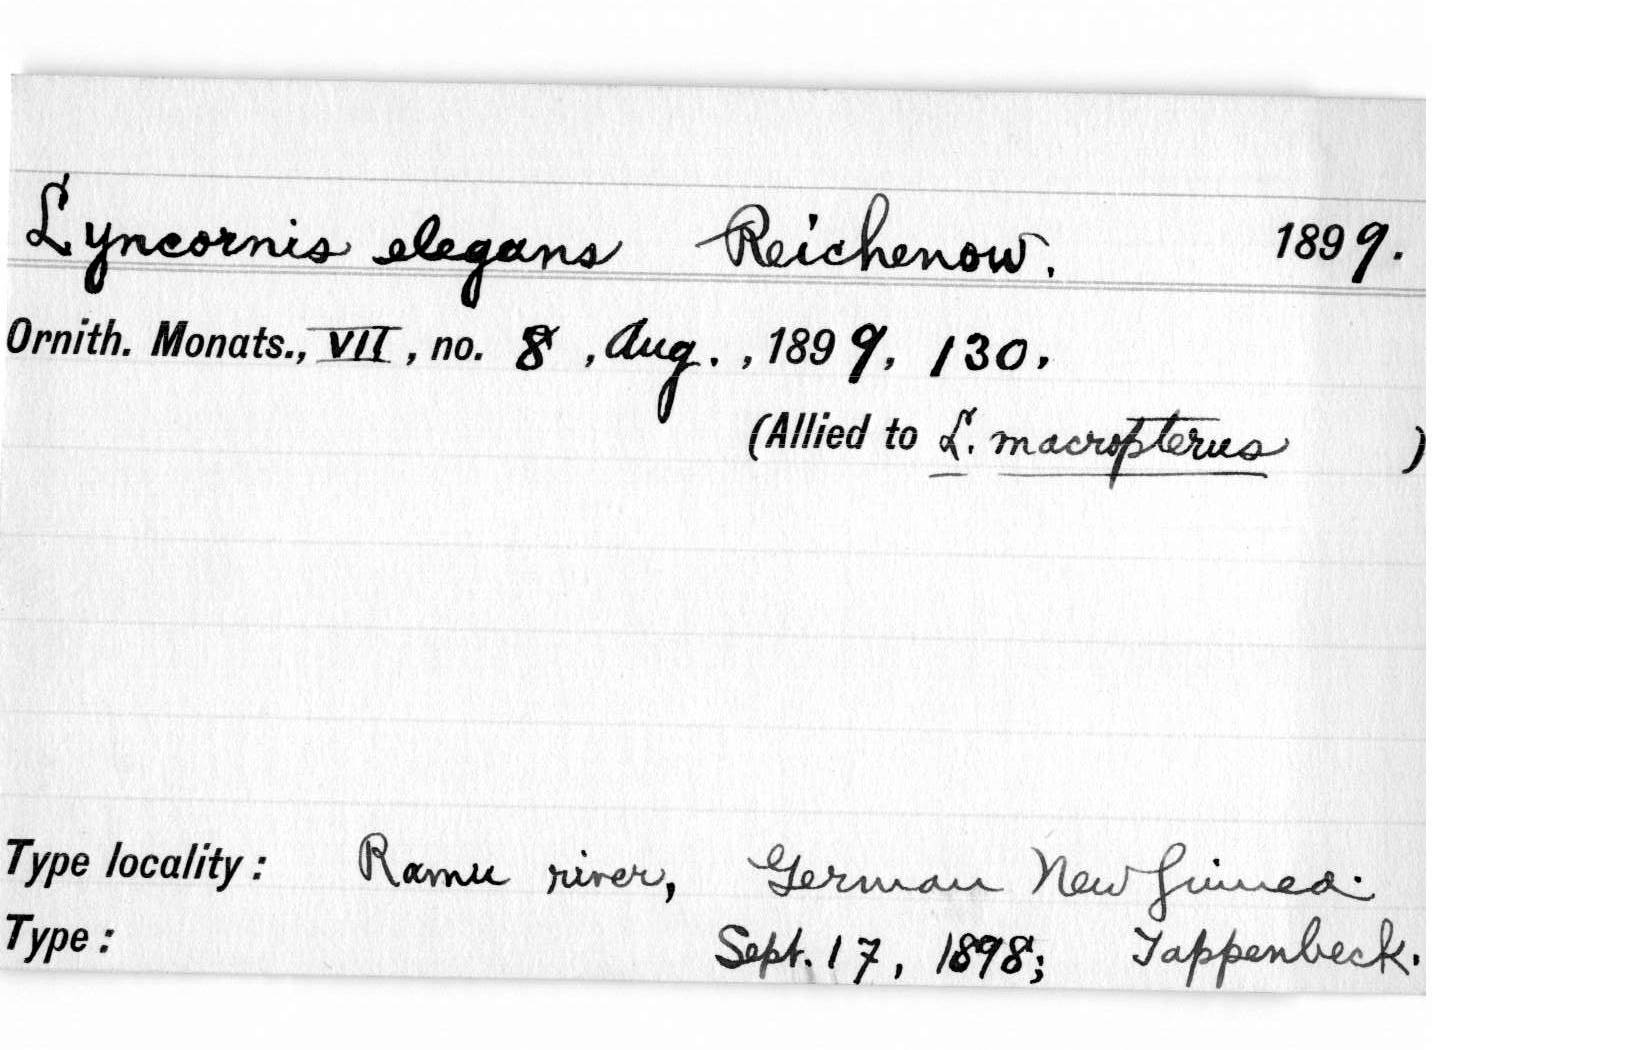 Lyncornis elegans Reichenow. 1899.
Ornith. Monats., VII, no. 8, Aug., 1899, 130.
(Allied to L. macropterus )
Type locality: Ramu river, German New Guinea.
Type: Sept. 17, 1898; Tappenbeck.